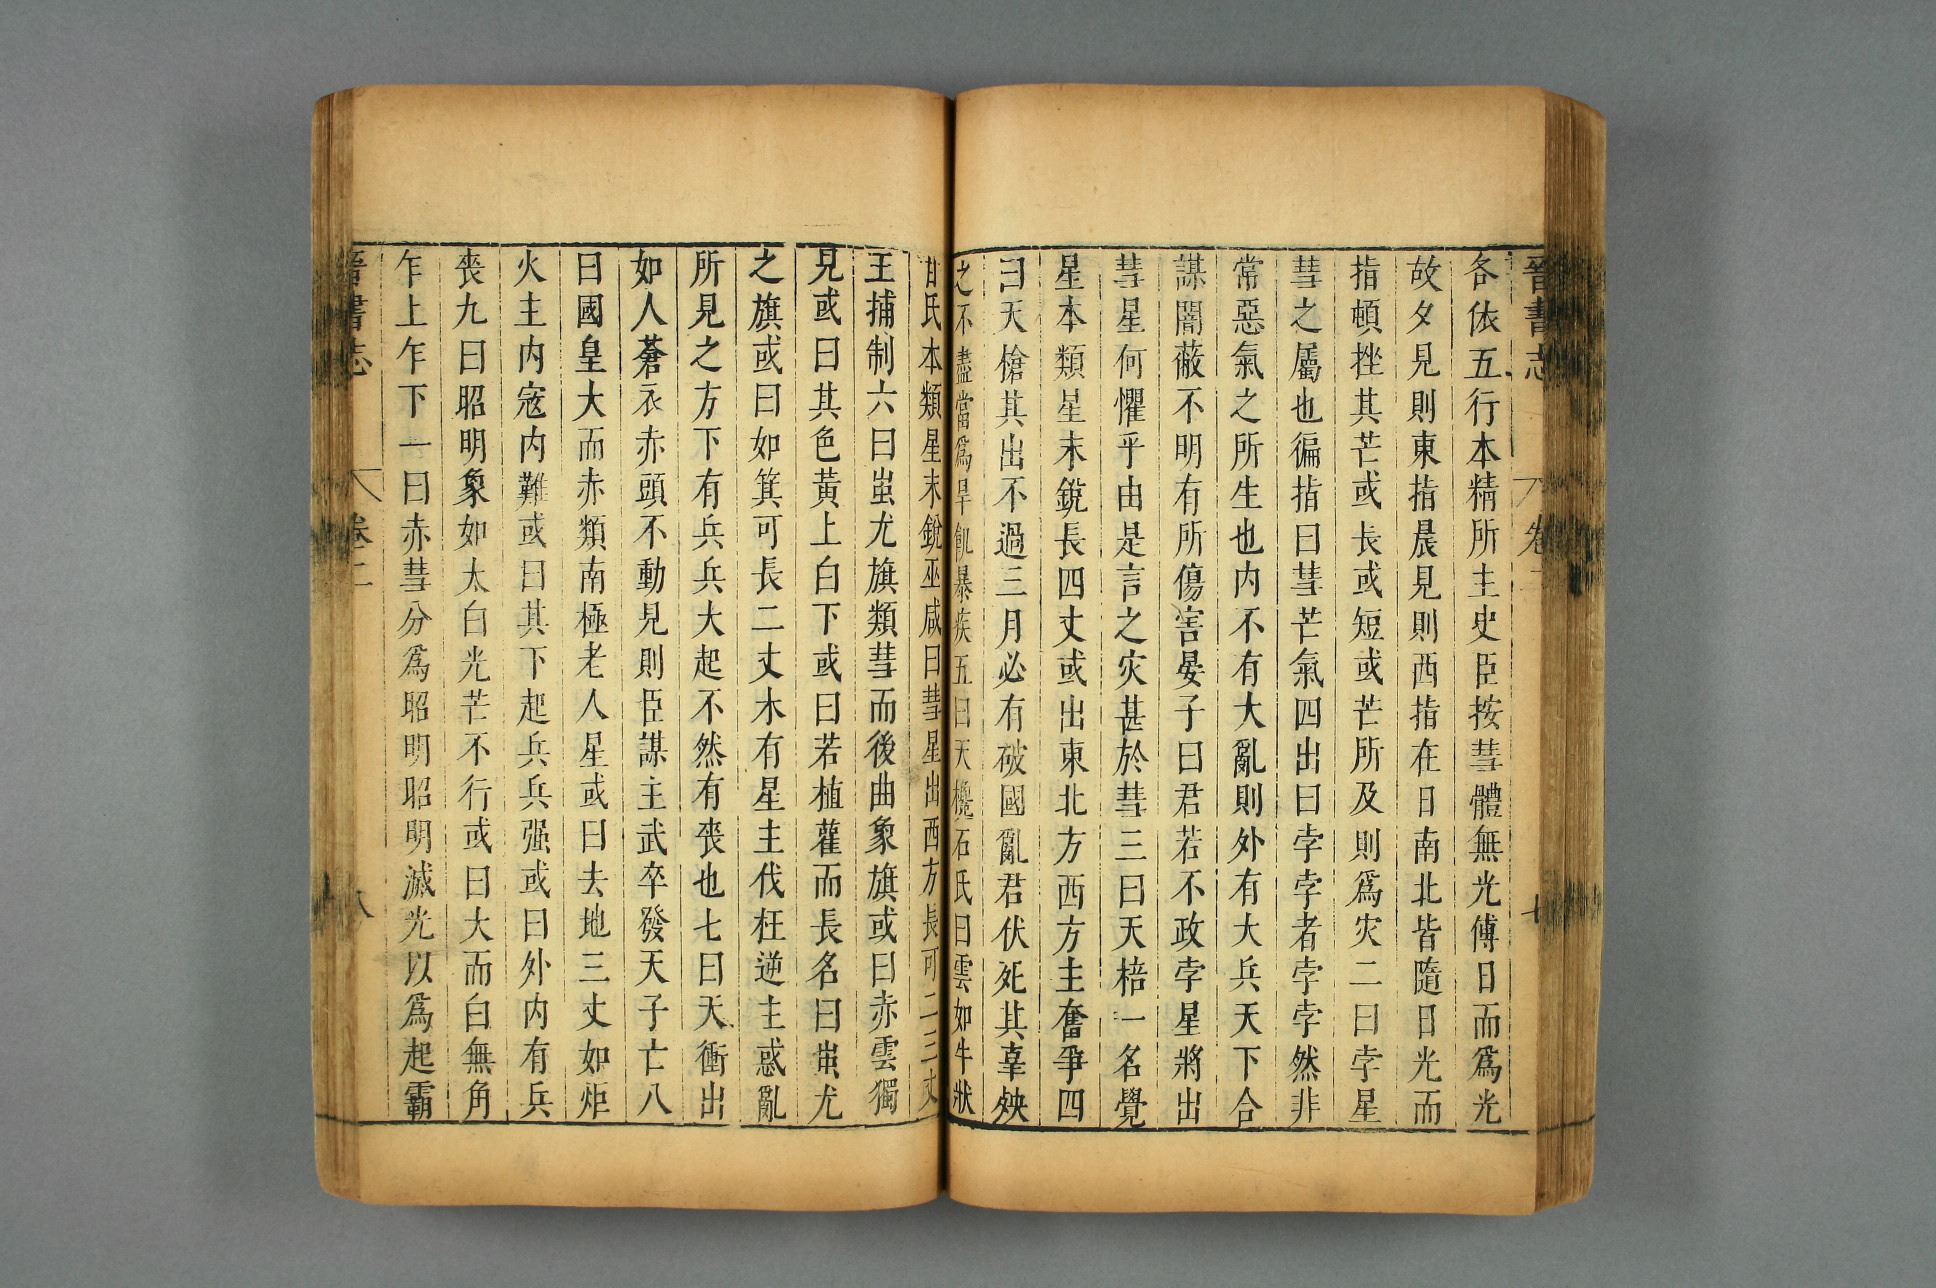 晉書志 卷二 七
各依五行本精所主史臣按彗體無光傅日而爲光
故夕見則東指晨見則西指在日南北皆隨日光而
指頓挫其芒或長或短或芒所及則爲灾二曰孛星
彗之屬也徧指曰彗芒氣四出曰孛孛者孛孛然非
常惡氣之所生也内不有大亂則外有大兵天下合
謀闇蔽不明有所傷害晏子曰君若不政孛星將出
彗星何懼乎由是言之灾甚於彗三曰天棓一名覺
星本類星末銳長四丈或出東北方西方主奮爭四
曰天槍其出不過三月必有破國亂君伏死其辜殃
之不盡當爲旱飢暴疾五曰天欃石氏曰雲如牛狀
甘氏本類星末銳巫咸曰彗星出西方長可二三丈
主捕制六曰蚩尤旗類彗而後曲象旗或曰赤雲獨
見或曰其色黃上白下或曰若植雚而長名曰蚩尤
之旗或曰如箕可長二丈木有星主伐枉逆主惑亂
所見之方下有兵兵大起不然有喪也七曰天衝出
如人蒼衣赤頭不動見則臣謀主武卒發天子亡八
曰國皇大而赤類南極老人星或曰去地三丈如炬
火主内寇内難或曰其下起兵兵强或曰外内有兵
喪九曰昭明象如太白光芒不行或曰大而白無角
乍上乍下一曰赤彗分爲昭明昭明滅光以爲起霸
晉書志 卷二 八